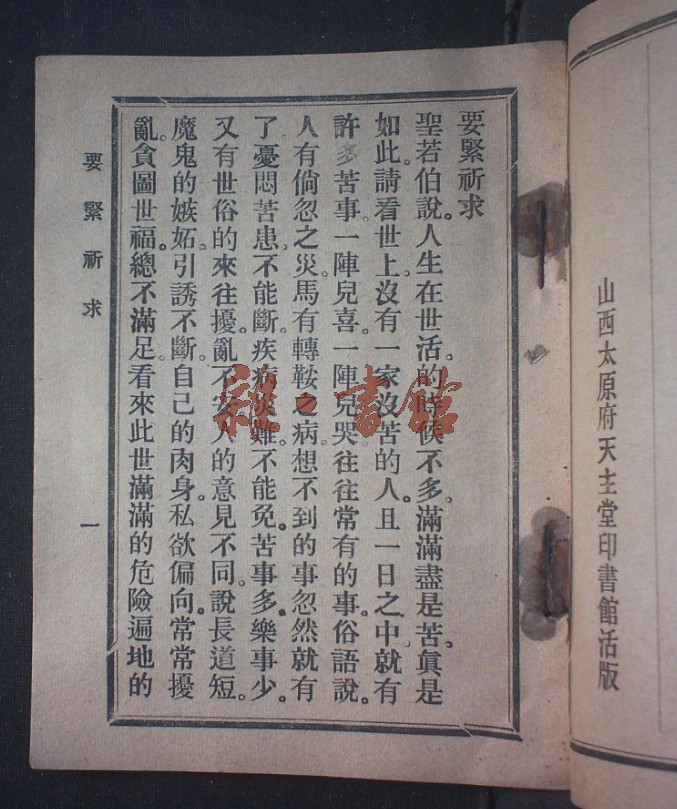 山西太原府天主堂印書館活版
要緊祈求
聖若伯說。人生在世活。的時候不多。滿滿盡是苦。眞是
如此。請看世上。沒有一家沒苦的人。且一日之中。就有
許多苦事。一陣兒喜。一陣兒哭。往往常有的事。俗語說。
人有倘忽之災。馬有轉鞍之病。想不到的事。忽然就有
了。憂悶苦患。不能斷。疾病災難。不能免。苦事多。樂事少。
又有世俗的來往擾亂。不安。人的意見不同。說長道短。
魔鬼的嫉妬。引誘不斷。自己的肉身。私欲偏向。常常擾
亂。貪圖世福。總不滿足。看來此世滿滿的危險。遍地的
要緊祈求
一
雜·書館